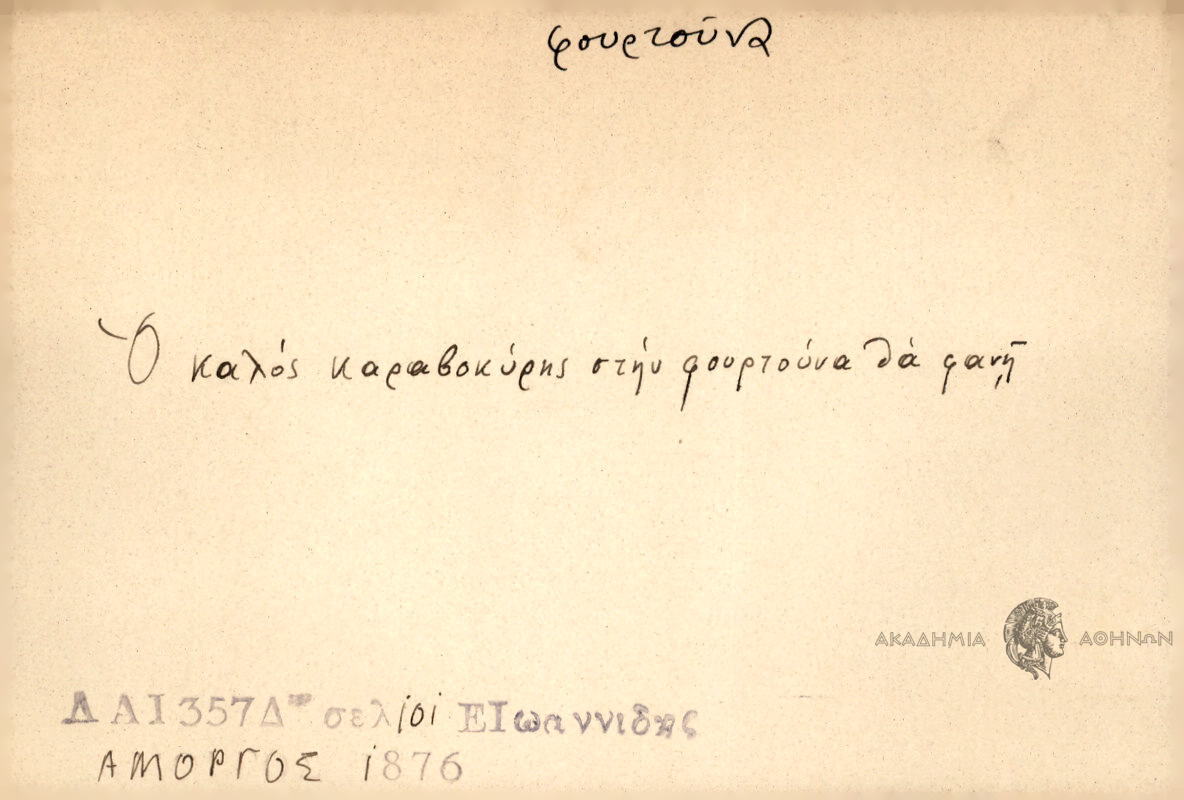 φουρτούνα
Ὁ καλός καραβοκύρης στήν φουρτούνα θά φανῇ
ΑΚΑΔΗΜΙΑ ΑΘΗΝΩΝ
ΔΑΙ357Δ σελ 101 ΕΙωαννιδης
ΑΜΟΡΓΟΣ 1876